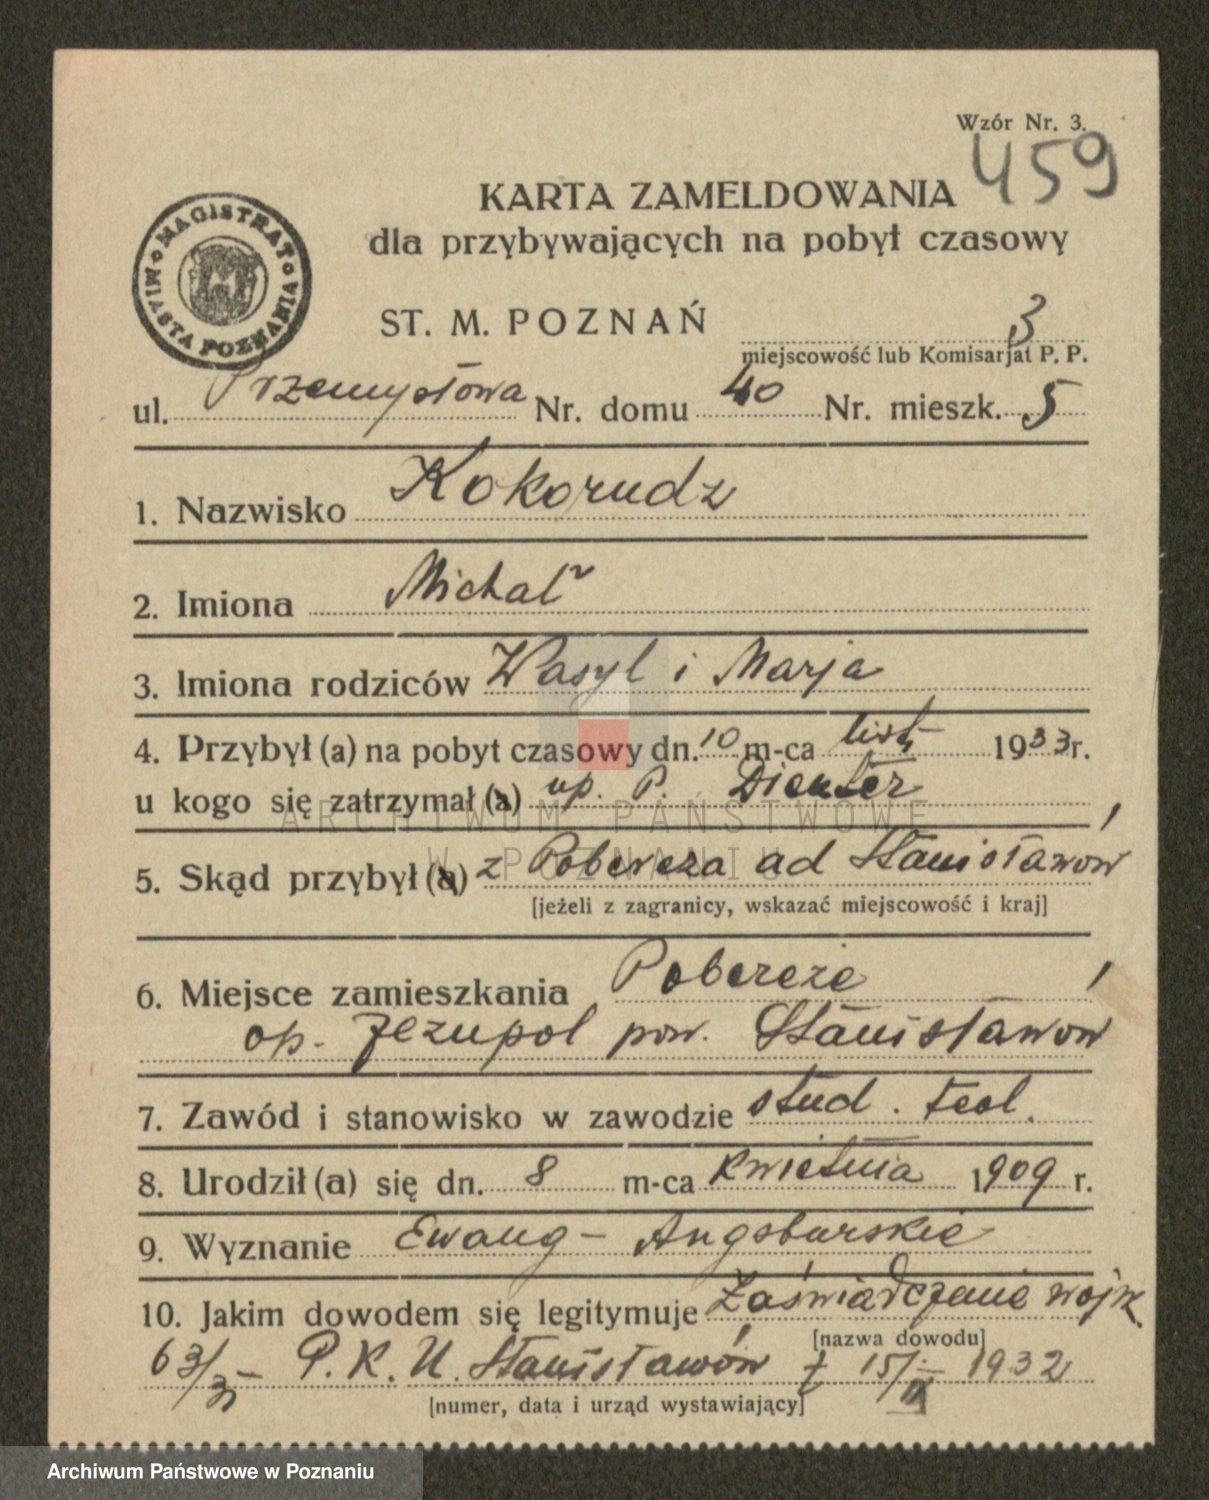 Wzór Nr. 3.
459
KARTA ZAMELDOWANIA
dla przybywających na pobyt czasowy
MAGISTRAT MIASTA POZNANIA
ST. M. POZNAŃ 3
miejscowość lub Komisarjat P. P.
ul. Przemysłowa Nr. domu 40 Nr. mieszk. 5
1. Nazwisko Kokorudz
2. Imiona Michał
3. Imiona rodziców Wasyl i Marja
4. Przybył (a) na pobyt czasowy dn. 10 m-ca list. 1933 r.
u kogo się zatrzymał (a) up. P. Dienter
ARCHIWUM PAŃSTWOWE
W POZNANIU
5. Skąd przybył (a) z Pobereża ad Stanisławów
[jeżeli z zagranicy, wskazać miejscowość i kraj]
6. Miejsce zamieszkania Pobereże
op. Jezupol pow. Stanisławów
7. Zawód i stanowisko w zawodzie stud. teol.
8. Urodził (a) się dn. 8 m-ca kwietnia 1909 r.
9. Wyznanie Ewang - Augsburskie
10. Jakim dowodem się legitymuje Zaświadczenie wojsk.
[nazwa dowodu]
63/31 - P. K. U. Stanisławów z 15/IX 1932
[numer, data i urząd wystawiający]
Archiwum Państwowe w Poznaniu